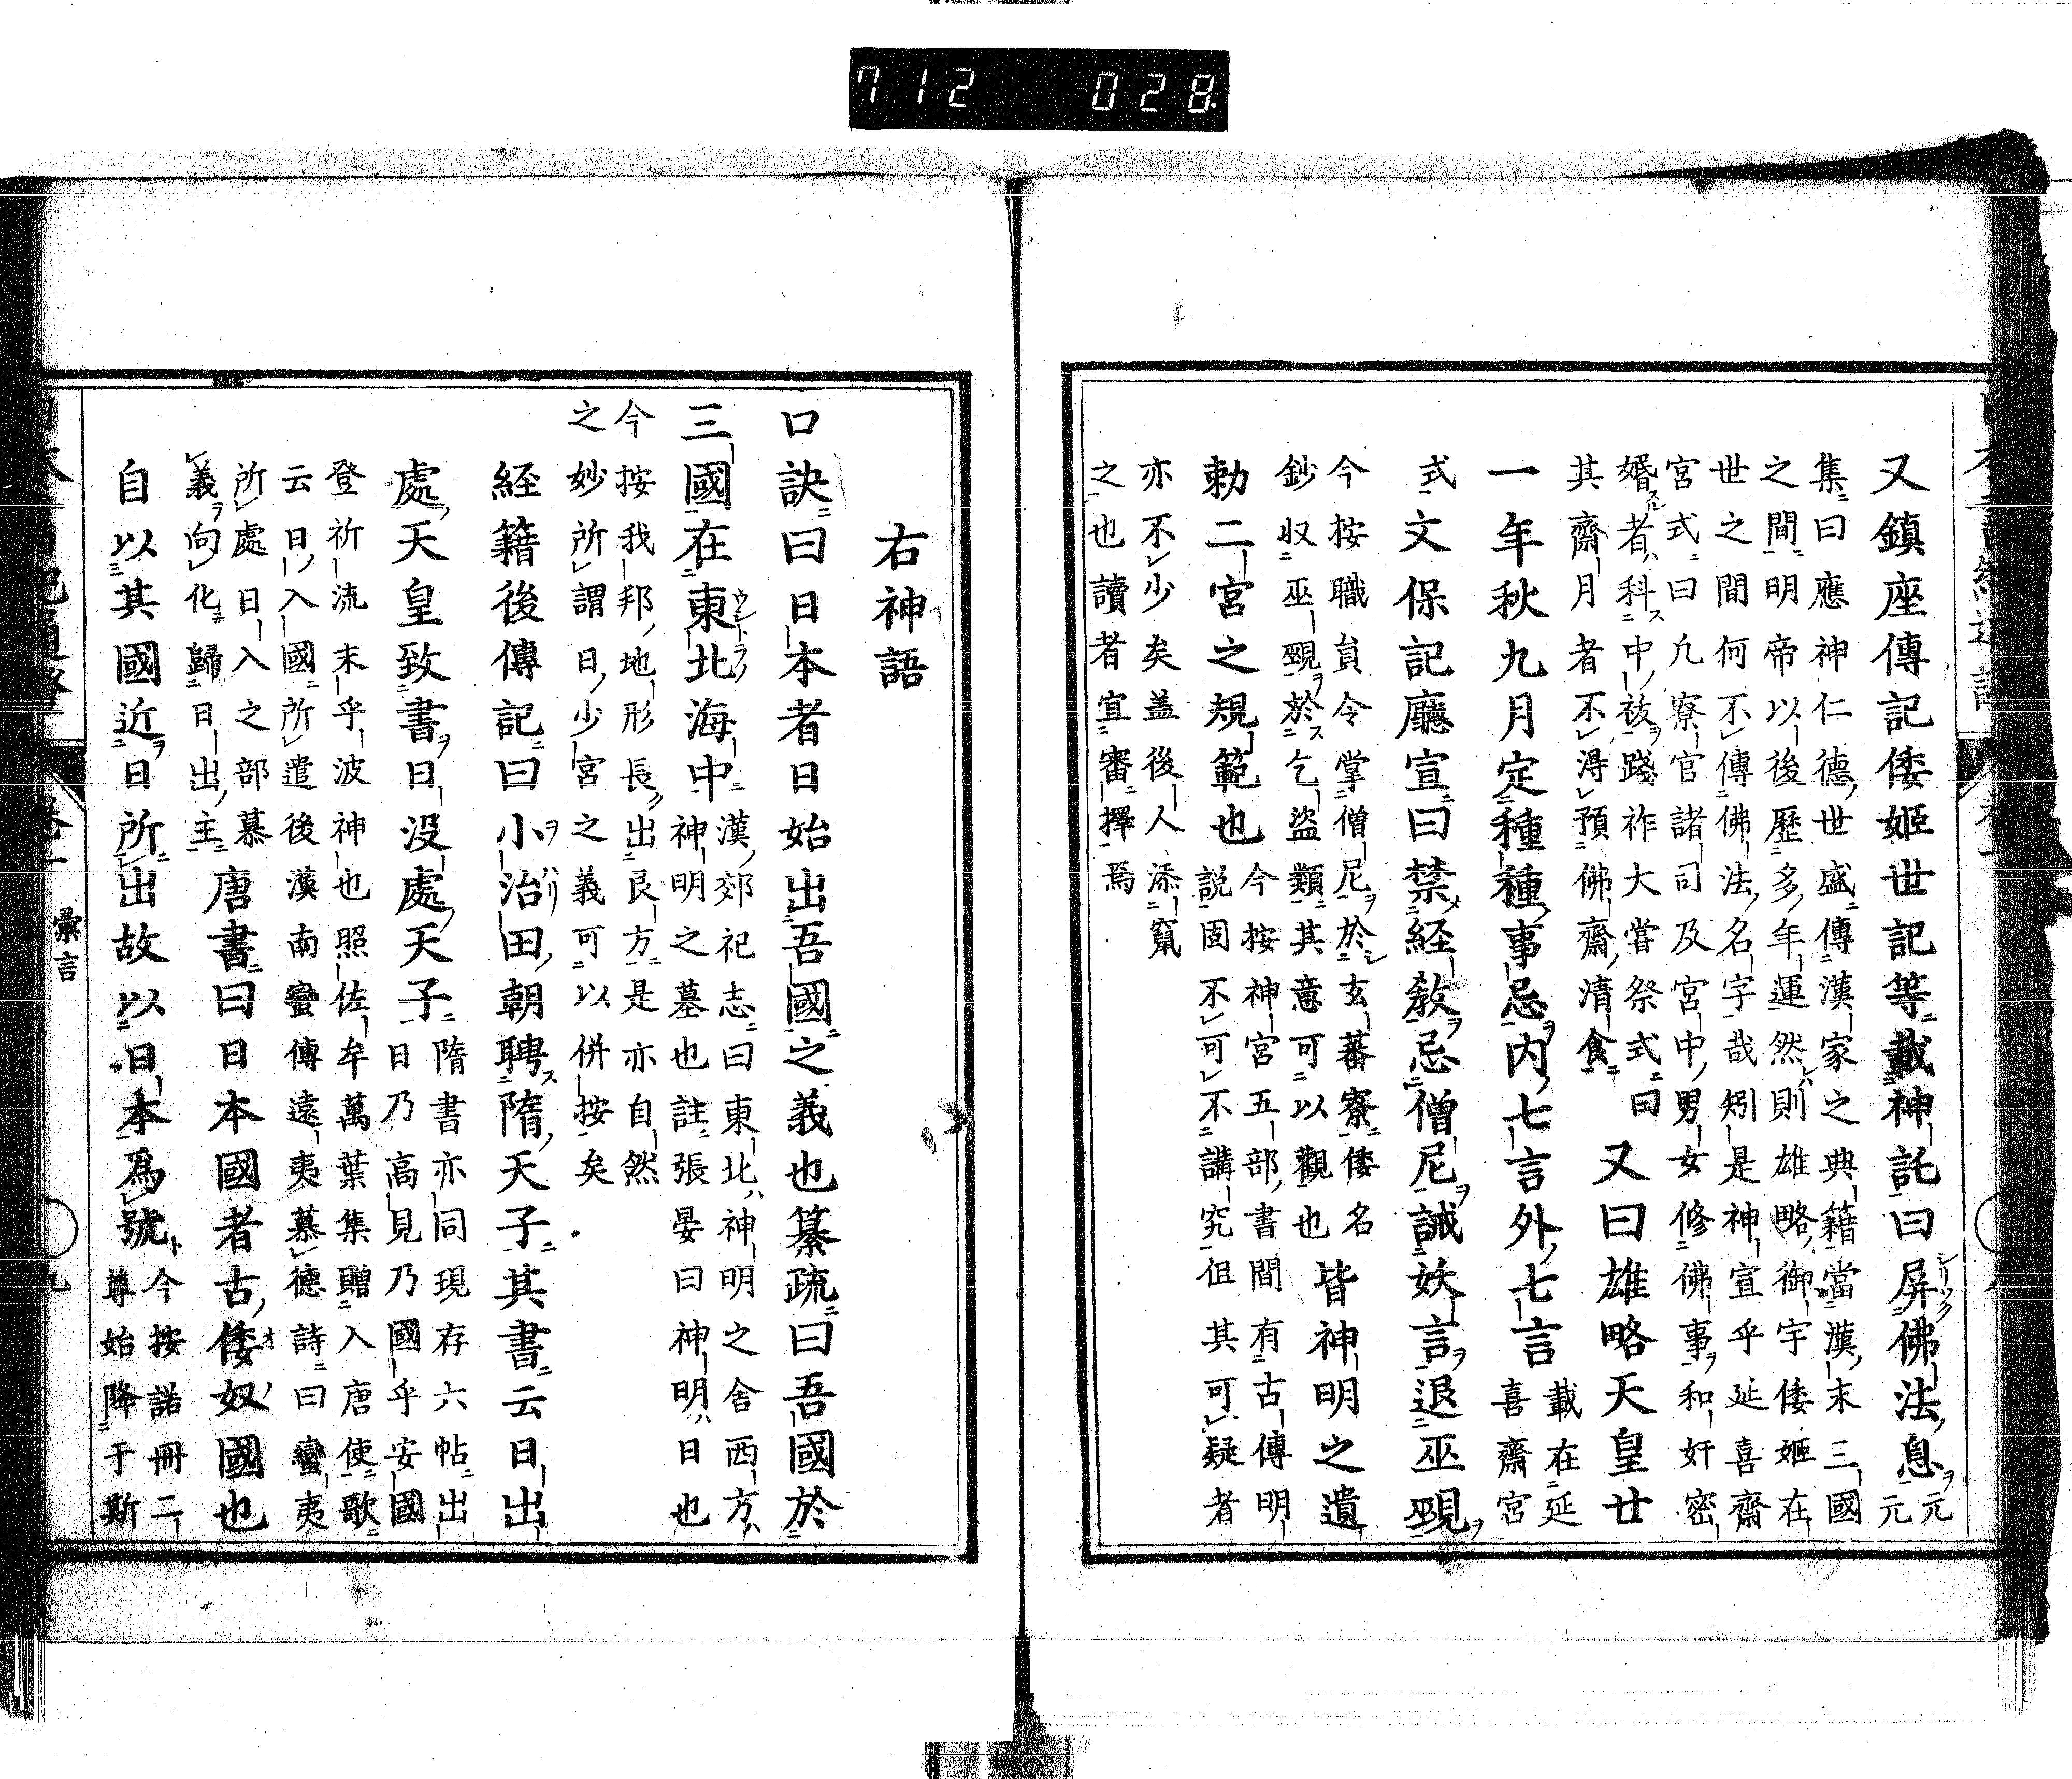 712 028
又鎮座傳記倭姬世記等載神託曰屏佛法息元元
集曰應神仁德世盛傳漢家之典籍當漢末三國
之間明帝以後歷多年運然則雄略御宇倭姬在
世之間何不傳佛法名字哉矧是神宣乎延喜齋
宮式曰凡寮官諸司及宮中男女修佛事和奸密
婚者科中祓踐祚大甞祭式曰
其齋月者不淂預佛齋清食
又曰雄略天皇廿
一年秋九月定種種事忌内七言外七言載在延
喜齋宮
式文保記廳宣曰禁経教忌僧尼誡妖言退巫覡
今按職員令掌僧尼於玄蕃寮倭名
鈔収巫覡於乞盗類其意可以觀也
皆神明之遺
勅二宮之規範也今按神宮五部書間有古傳明
説固不可不講究但其可疑者
亦不少矣盖後人添竄
之也讀者宜審擇焉
右神語
口訣曰日本者日始出吾國之義也纂疏曰吾國於
三國在東北海中漢郊祀志曰東北神明之舎西方
神明之墓也註張晏曰神明日也
今按我邦地形長出艮方是亦自然
之妙所謂日少宮之義可以併按矣
経籍後傳記曰小治田朝聘隋天子其書云日出
處天皇致書日没處天子隋書亦同現存六帖出
日乃高見乃國乎安國
登祈流末乎波神也照佐牟萬葉集贈入唐使歌
云日入國所遣後漢南蠻傳遠夷慕德詩曰蠻夷
所處日入之部慕
義向化歸日出主
唐書曰日本國者古倭奴國也
自以其國近日所出故以日本爲號今按諾冊二
尊始降于斯
彙言
九